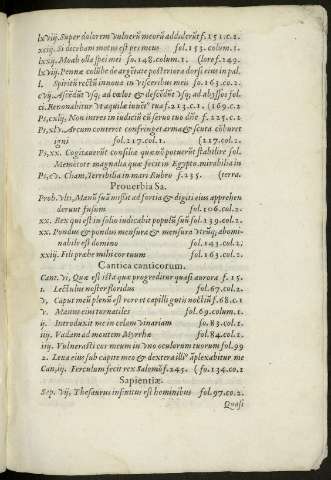 lxviij. Super dolorem vulnerũ meorũ addiderũt f.151.c.1.
xciij. Si dicebam motus est pes meus fol.153.colum.1.
lxxij. Moab olla spei mei fo.148.colum.1. (lore f.149.
lxvij. Pennæ colũbæ deargẽtatæ posteriora dorsi eius in pal
l. Spiritũ rectũ innoua in visceribus meis fo.163.co.2.
cvj. Ascẽdũt vsq; ad cælos & descẽdũt vsq; ad abyssos fol.
ci. Renouabitur vt aquilæ iuuẽt9 tua f.213.c.1. (169.c.2
Ps,cxlij. Non intres in iudiciũ cũ seruo tuo dñe f.225.c.2
Ps,xlv. Arcum conteret confringet arma & scuta cõburet
igni fol.217.col.1. (217.col.2.
Ps,xx. Cogitauerũt consilia quæ nõ potuerũt stabilire fol.
Memores magnalia quæ fecit in Egypto mirabilia in
Ps, cv. Cham, Terribilia in mari Rubro f.235. (terra.
Prouerbia Sa.
Prob.vlti, Manũ suã misit ad fortia & digiti eius apprehen
derunt fusum fol.106.col.2.
xx. Rex qui est in solio iudicabit populũ suũ fol.139.col.2.
xx. Pondus & pondus mensura & mensura vtrũq; abomi-
nabile est domino fol.143.col.2.
xxiij. Fili præbe mihi cor tuum fol.163.col.2.
Cantica canticorum.
Cant.vj, Quæ est ista quæ progreditur quasi aurora f.15.
i. Lectulus noster floridus fol.67.col.2.
v, Caput meũ plenũ est rore et capilli guttis noctiũ f.68.c.1
v. Manus eius turnatiles fol.69.colum.1.
ij. Introduxit me in cellam vinariam fo.83.col.1.
iiij. Vadam ad montem Myrrhæ fol.84.col.1.
iiij. Vulnerasti cor meum in vno oculorum tuorum fol.99
2. Leua eius sub capite meo & dextera illi9 ãplexabitur me
Can,iij. Ferculum fecit rex Salomõ f.245. (fo.134.co.1
Sapientiæ.
Sap. vij, Thesaurus infinitus est hominibus fol.97.co.2.
Quasi